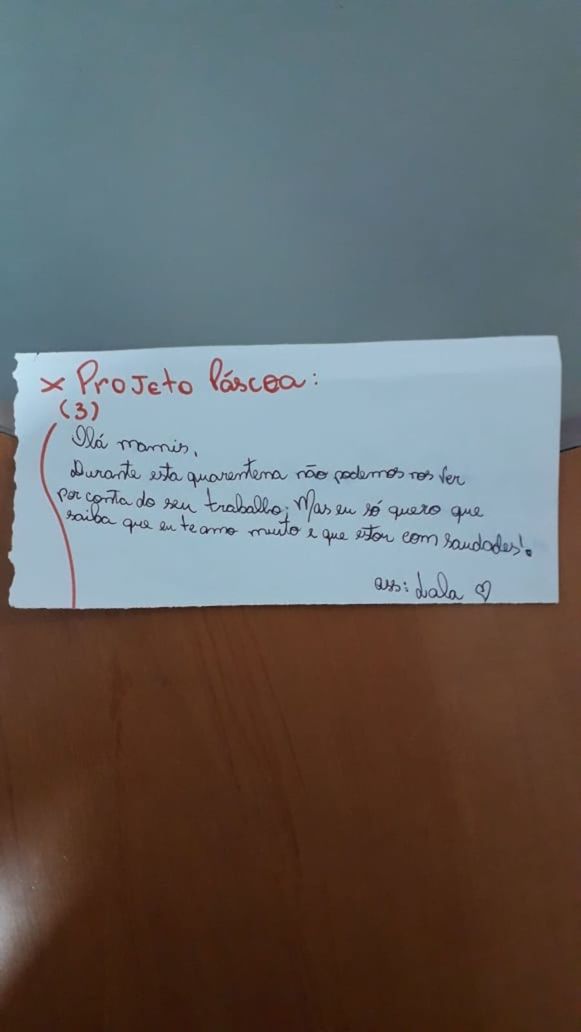 x Projeto Páscoa:
(3)
Olá mamis,
Durante esta quarentena não podemos nos ver
por conta do seu trabalho; Mas eu só quero que
saiba que eu te amo muito e que estou com saudades!.
ass: Lala ♡